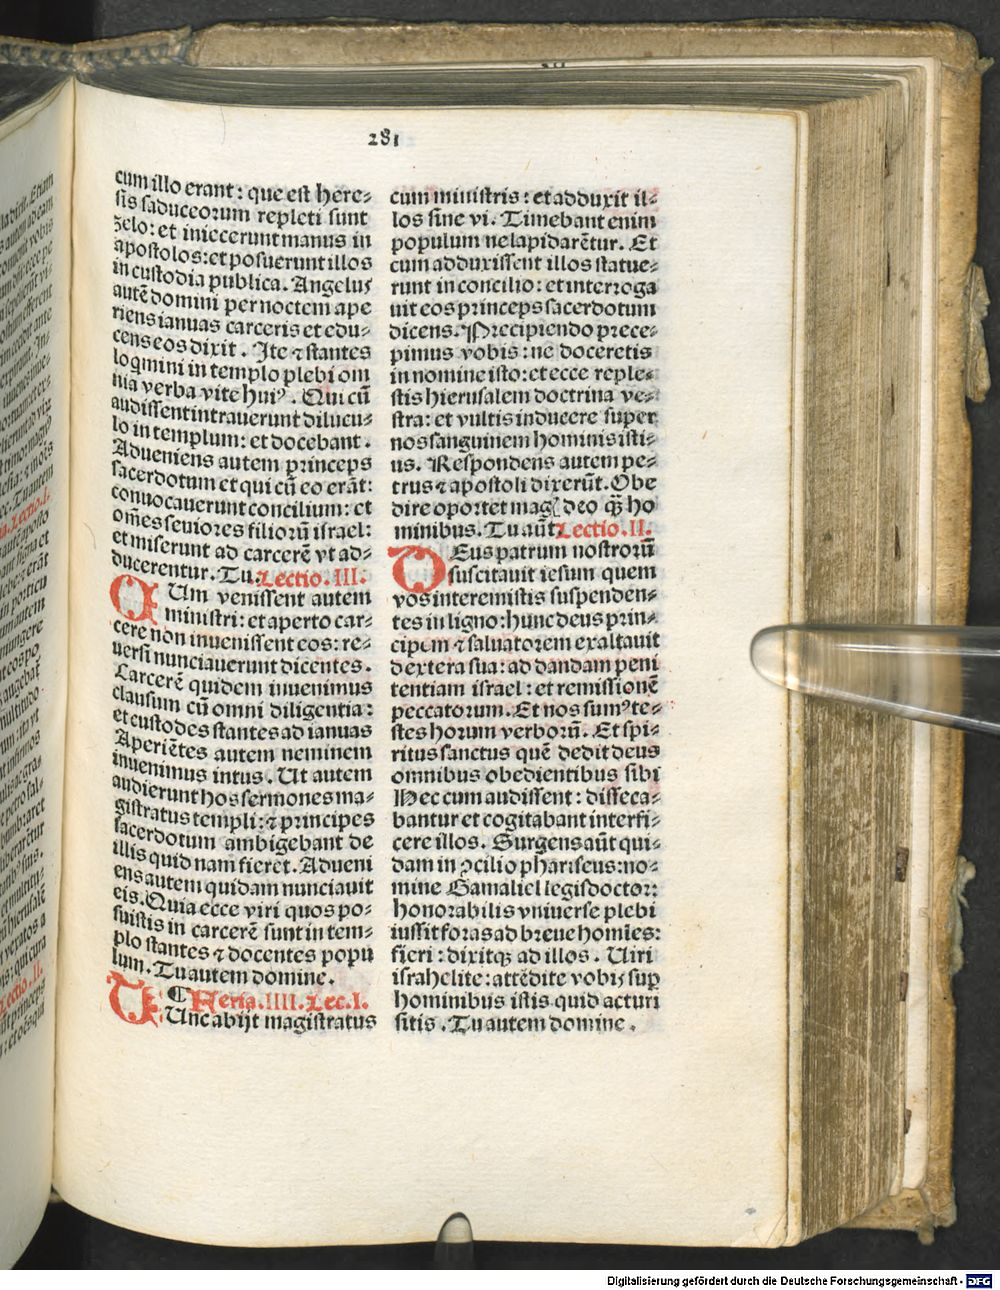 281
cum illo erant: que est here⸗
sis saduceorum repleti sunt
zelo: et iniecerunt manus in
apostolos: et posuerunt illos
in custodia publica. Angelus
autē domini per noctem ape
riens ianuas carceris et edu⸗
cens eos dixit. Ite ⁊ stantes
loqmini in templo plebi om
nia verba vite huiꝰ. Qui cū
audissent intrauerunt dilucu⸗
lo in templum: et docebant.
Adueniens autem princeps
sacerdotum et qui cū eo erāt:
conuocauerunt concilium: et
om̄es seuiores filiorū israel:
et miserunt ad carcerē vt ad⸗
ducerentur. Tu. Lectio. III.
CUm venissent autem
ministri: et aperto car⸗
cere non inuenissent eos: re⸗
uersi nunciauerunt dicentes.
Carcerē quidem inuenimus
clausum cū omni diligentia:
et custodes stantes ad ianuas
Aperiētes autem neminem
inuenimus intus. Ut autem
audierunt hos sermones ma⸗
gistratus templi: ⁊ principes
sacerdotum ambigebant de
illis quid nam fieret. Adueni
ens autem quidam nunciauit
eis. Quia ecce viri quos po⸗
suistis in carcerē sunt in tem⸗
plo stantes ⁊ docentes popu
lum. Tu autem domine.
¶ Feria. IIII. Lec. I.
TUnc abijt magistratus
cum ministris: et adduxit il⸗
los sine vi. Timebant enim
populum ne lapidarētur. Et
cum adduxissent illos statue⸗
runt in concilio: et interroga
uit eos princeps sacerdotum
dicens. Precipiendo prece⸗
pimus vobis: ne doceretis
in nomine isto: et ecce reple⸗
stis hierusalem doctrina ve⸗
stra: et vultis inducere super
nos sanguinem hominis isti⸗
us. Respondens autem pe⸗
trus ⁊ apostoli dixerūt. Obe
dire oportet mag deo qꝫ̄ ho
minibus. Tu aūt Lectio. II.
DEus patrum nostrorū
suscitauit iesum quem
vos interemistis suspenden⸗
tes in ligno: hunc deus prin⸗
cipem ⁊ saluatorem exaltauit
dextera sua: ad dandam peni
tentiam israel: et remissionē
peccatorum. Et nos sumꝰ te⸗
stes horum verborū. Et spi⸗
ritus sanctus quē dedit deus
omnibus obedientibus sibi
Hec cum audissent: disseca⸗
bantur et cogitabant interfi⸗
cere illos. Surgens aūt qui⸗
dam in ꝯcilio phariseus: no⸗
mine Gamaliel legisdoctor:
honorabilis vniuerse plebi
iussit foras ad breue homīes:
fieri: dixitqꝫ ad illos. Uiri
israhelite: attēdite vobis sup
hominibus istis quid acturi
sitis. Tu autem domine.
Digitalisierung gefördert durch die Deutsche Forschungsgemeinschaft - DFG